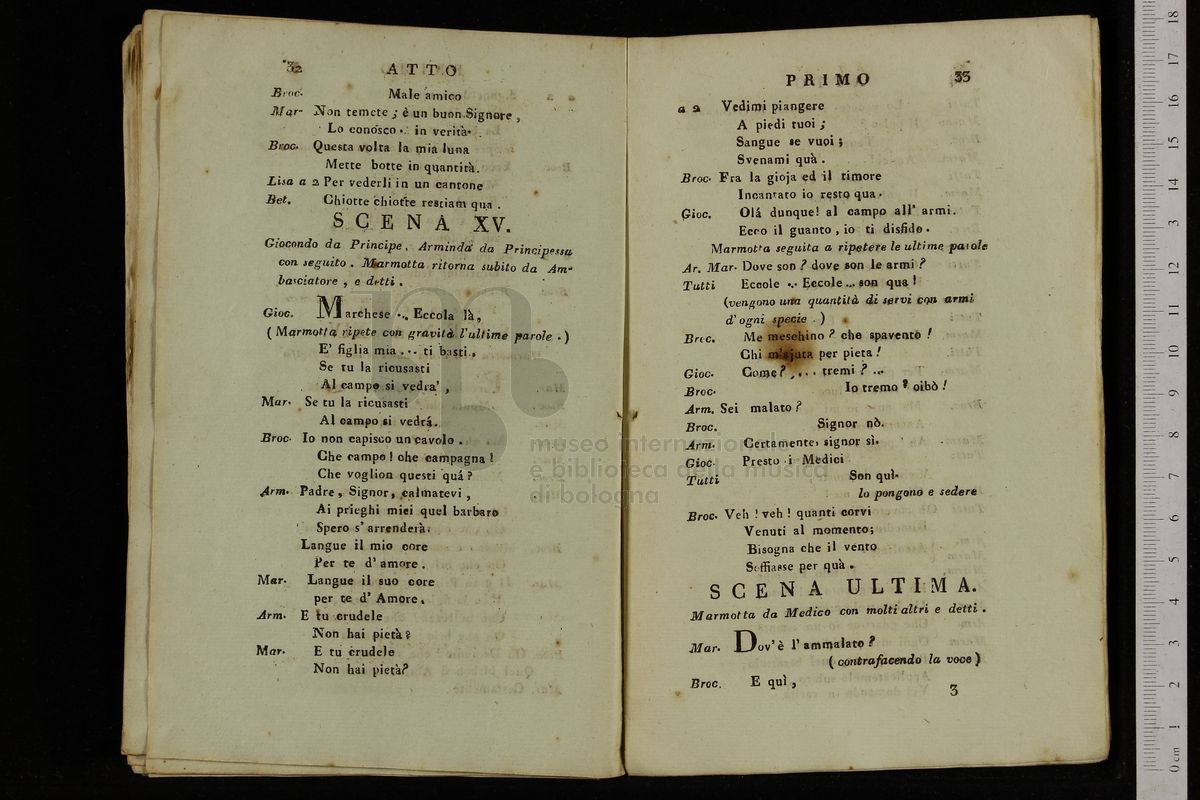 32 ATTO
Broc. Male amico
Mar. Non temete ; è un buon Signore ,
Lo conosco .. in verità.
Broc. Questa volta la mia luna
Mette botte in quantità.
Lisa a 2 Per vederli in un cantone
Bet. Chiotte chiotte restiam qua .
SCENA XV.
Giocondo da Principe, Arminda da Principessa
con seguito . Marmotta ritorna subito da Am-
basciatore , e detti .
Gioc. Marchese ... Eccola là,
( Marmotta ripete con gravità l'ultime parole . )
E' figlia mia ... ti basti ,
Se tu la ricusasti
Al campo si vedra' ,
Mar. Se tu la ricusasti
Al campo si vedrá.
Broc. Io non capisco un cavolo .
Che campo ! che campagna !
Che voglion questi quá ?
Arm. Padre, Signor, calmatevi ,
Ai prieghi miei quel barbaro
Spero s' arrenderà.
Langue il mio core
Per te d' amore .
Mar. Langue il suo core
per te d' Amore .
Arm. E tu crudele
Non hai pietà ?
Mar. E tu crudele
Non hai pietà?
PRIMO 33
a 2 Vedimi piangere
A piedi tuoi ;
Sangue se vuoi ;
Svenami quà .
Broc. Fra la gioja ed il timore
Incantato io resto qua .
Gioc. Olá dunque! al campo all' armi.
Ecco il guanto , io ti disfido .
Marmotta seguita a ripetere le ultime parole
Ar. Mar. Dove son ? dove son le armi ?
Tutti Eccole ... Eccole ... son qua !
(vengono una quantità di servi con armi
d' ogni specie . )
Broc. Me meschino ? che spavento !
Chi m'ajuta per pieta !
Gioc. Come ? .... tremi ? ...
Broc. Io tremo ? oibò !
Arm. Sei malato ?
Broc. Signor nò.
Arm. Certamente, signor sì.
Gioc. Presto i Medici
Tutti Son quì.
lo pongono e sedere
Broc. Veh ! veh ! quanti corvi
Venuti al momento;
Bisogna che il vento
Soffiasse per quà .
SCENA ULTIMA.
Marmotta da Medico con molti altri e detti .
Mar. Dov'è l' ammalato ?
( contrafacendo la voce )
Broc. E quì ,
3
museo internazionale
e biblioteca della musica
di bologna
0 cm 1 2 3 4 5 6 7 8 9 10 11 12 13 14 15 16 17 18